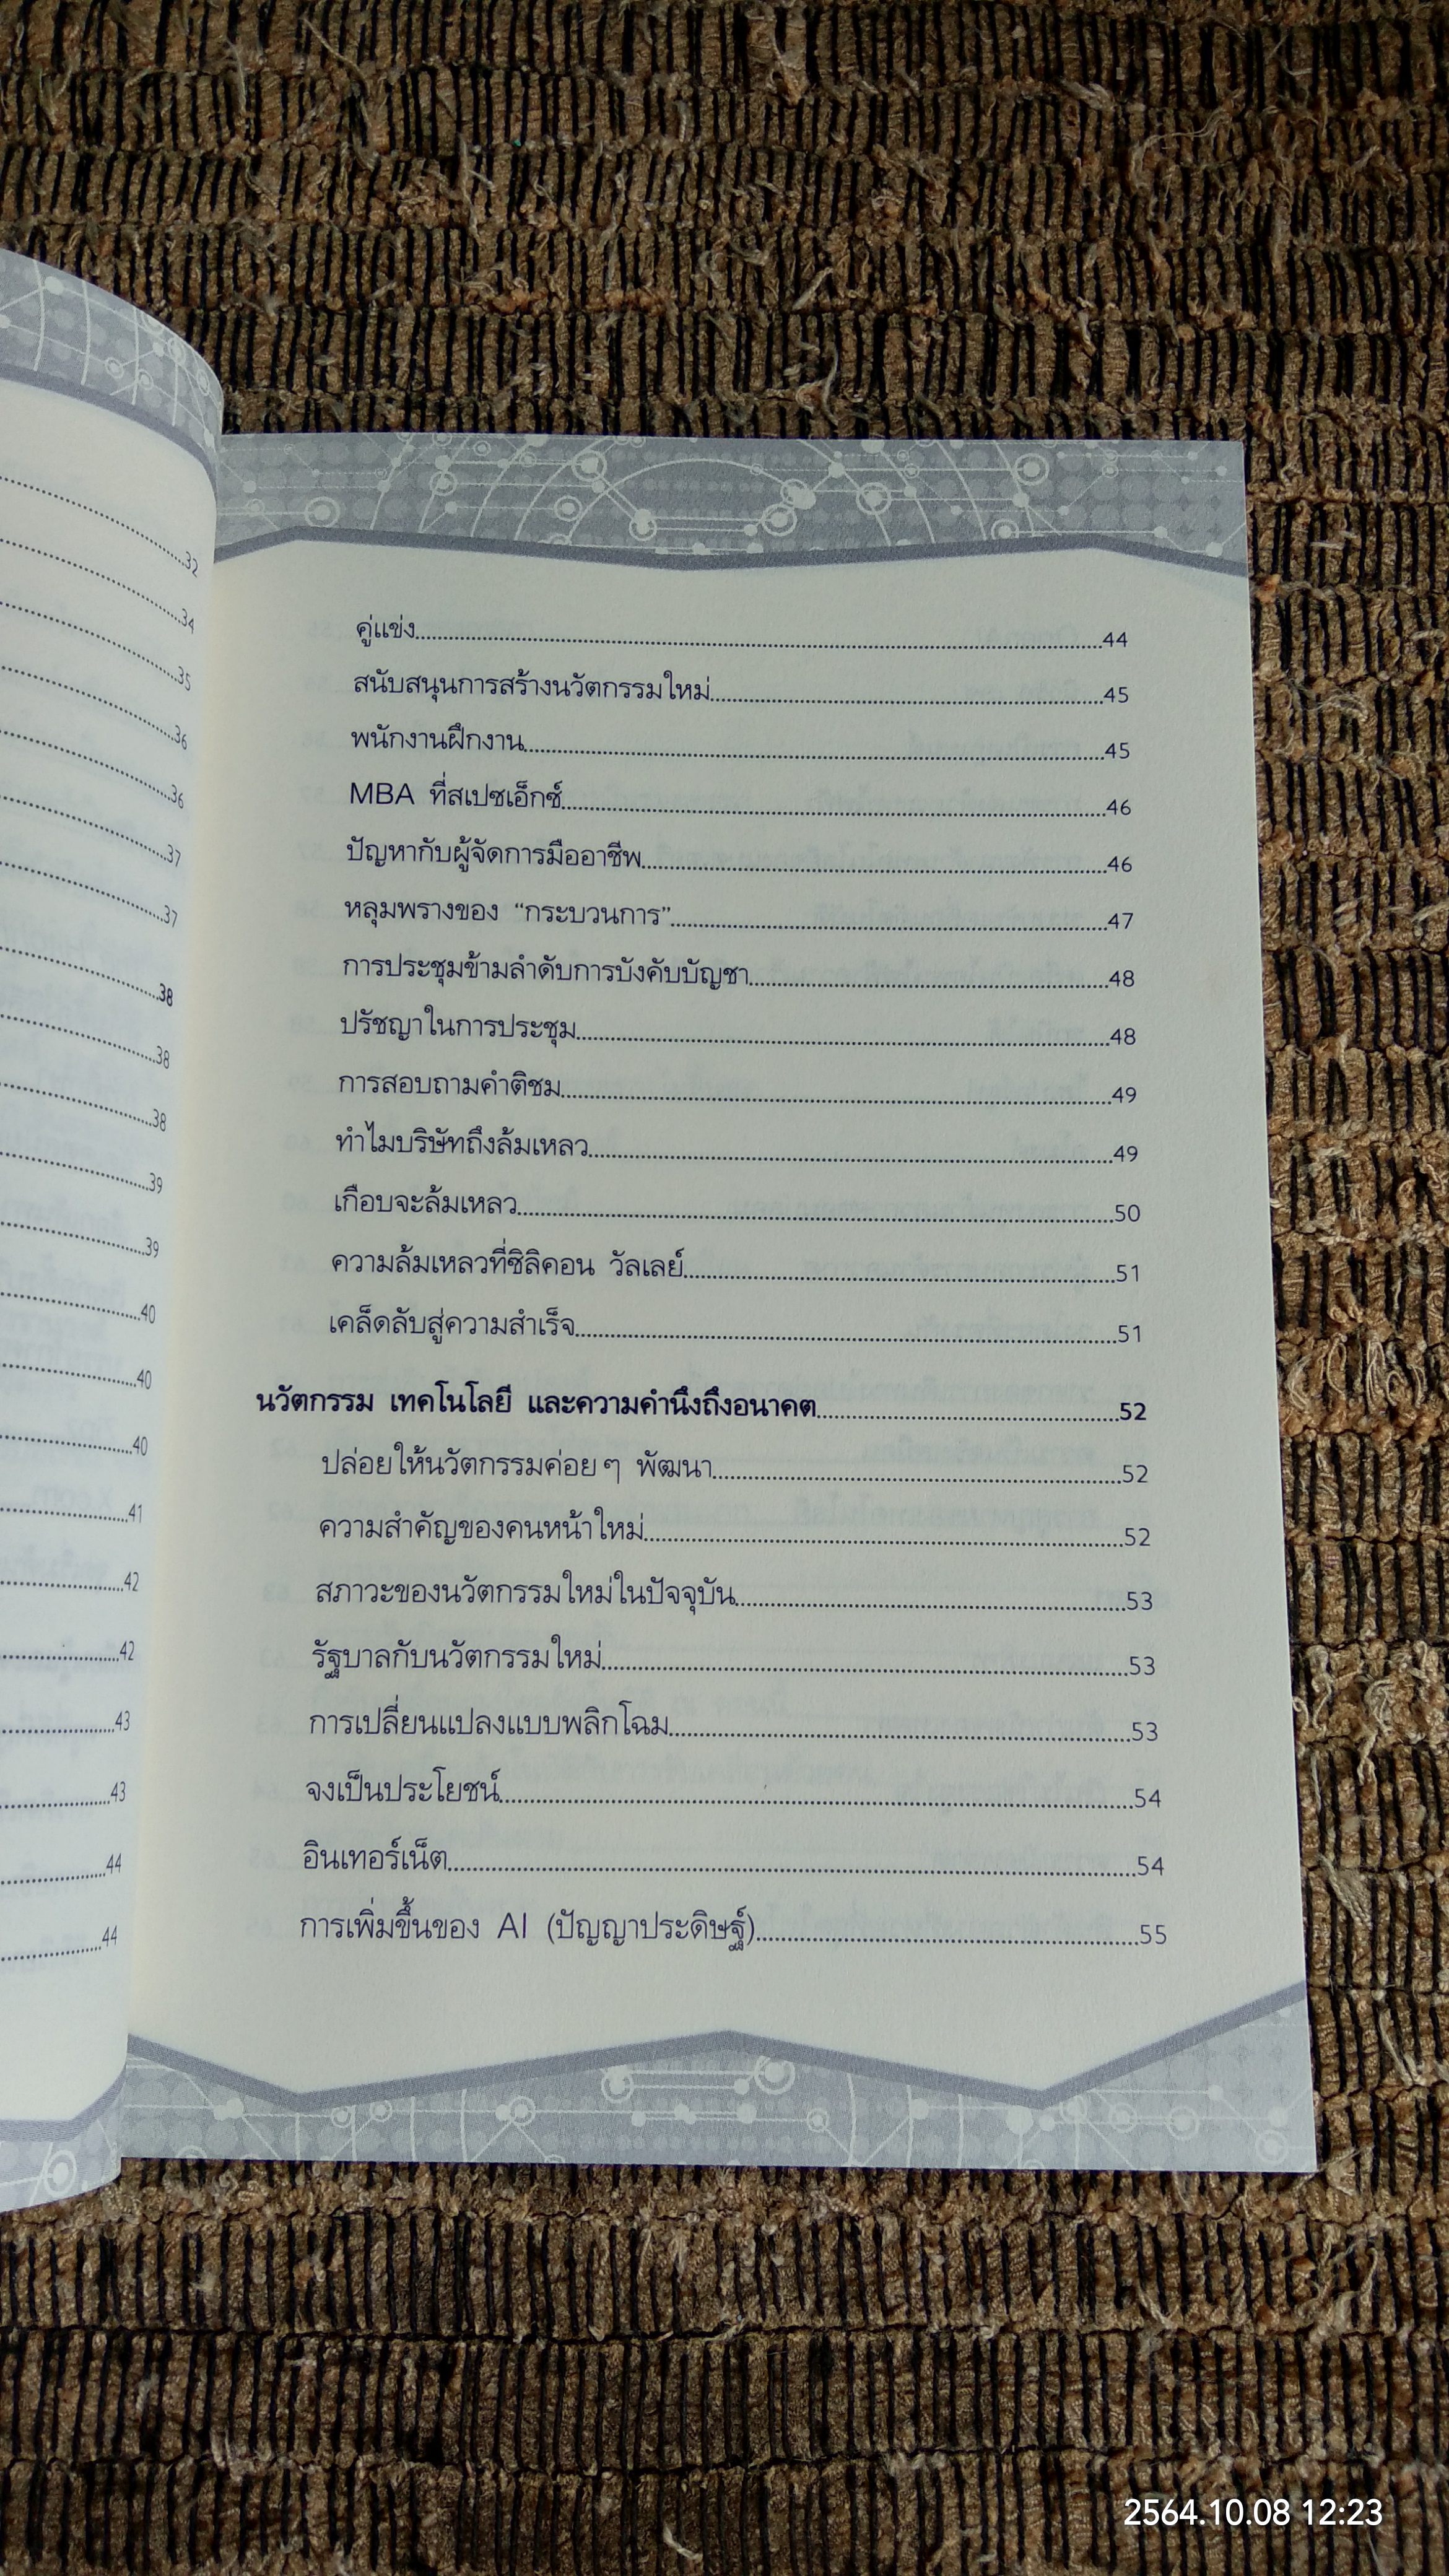 32
34
35
36
36
37
37
38
38
38
39
39
40
40
40
41
42
42
43
43
44
44
คู่แข่ง 44
สนับสนุนการสร้างนวัตกรรมใหม่ 45
พนักงานฝึกงาน 45
MBA ที่สเปซเอ็กซ์ 46
ปัญหากับผู้จัดการมืออาชีพ 46
หลุมพรางของ “กระบวนการ” 47
การประชุมข้ามลำดับการบังคับบัญชา 48
ปรัชญาในการประชุม 48
การสอบถามคำติชม 49
ทำไมบริษัทถึงล้มเหลว 49
เกือบจะล้มเหลว 50
ความล้มเหลวที่ซิลิคอน วัลเลย์ 51
เคล็ดลับสู่ความสำเร็จ 51
นวัตกรรม เทคโนโลยี และความคำนึงถึงอนาคต 52
ปล่อยให้นวัตกรรมค่อยๆ พัฒนา 52
ความสำคัญของคนหน้าใหม่ 52
สภาวะของนวัตกรรมใหม่ในปัจจุบัน 53
รัฐบาลกับนวัตกรรมใหม่ 53
การเปลี่ยนแปลงแบบพลิกโฉม 53
จงเป็นประโยชน์ 54
อินเทอร์เน็ต 54
การเพิ่มขึ้นของ AI (ปัญญาประดิษฐ์) 55
2564.10.08 12:23